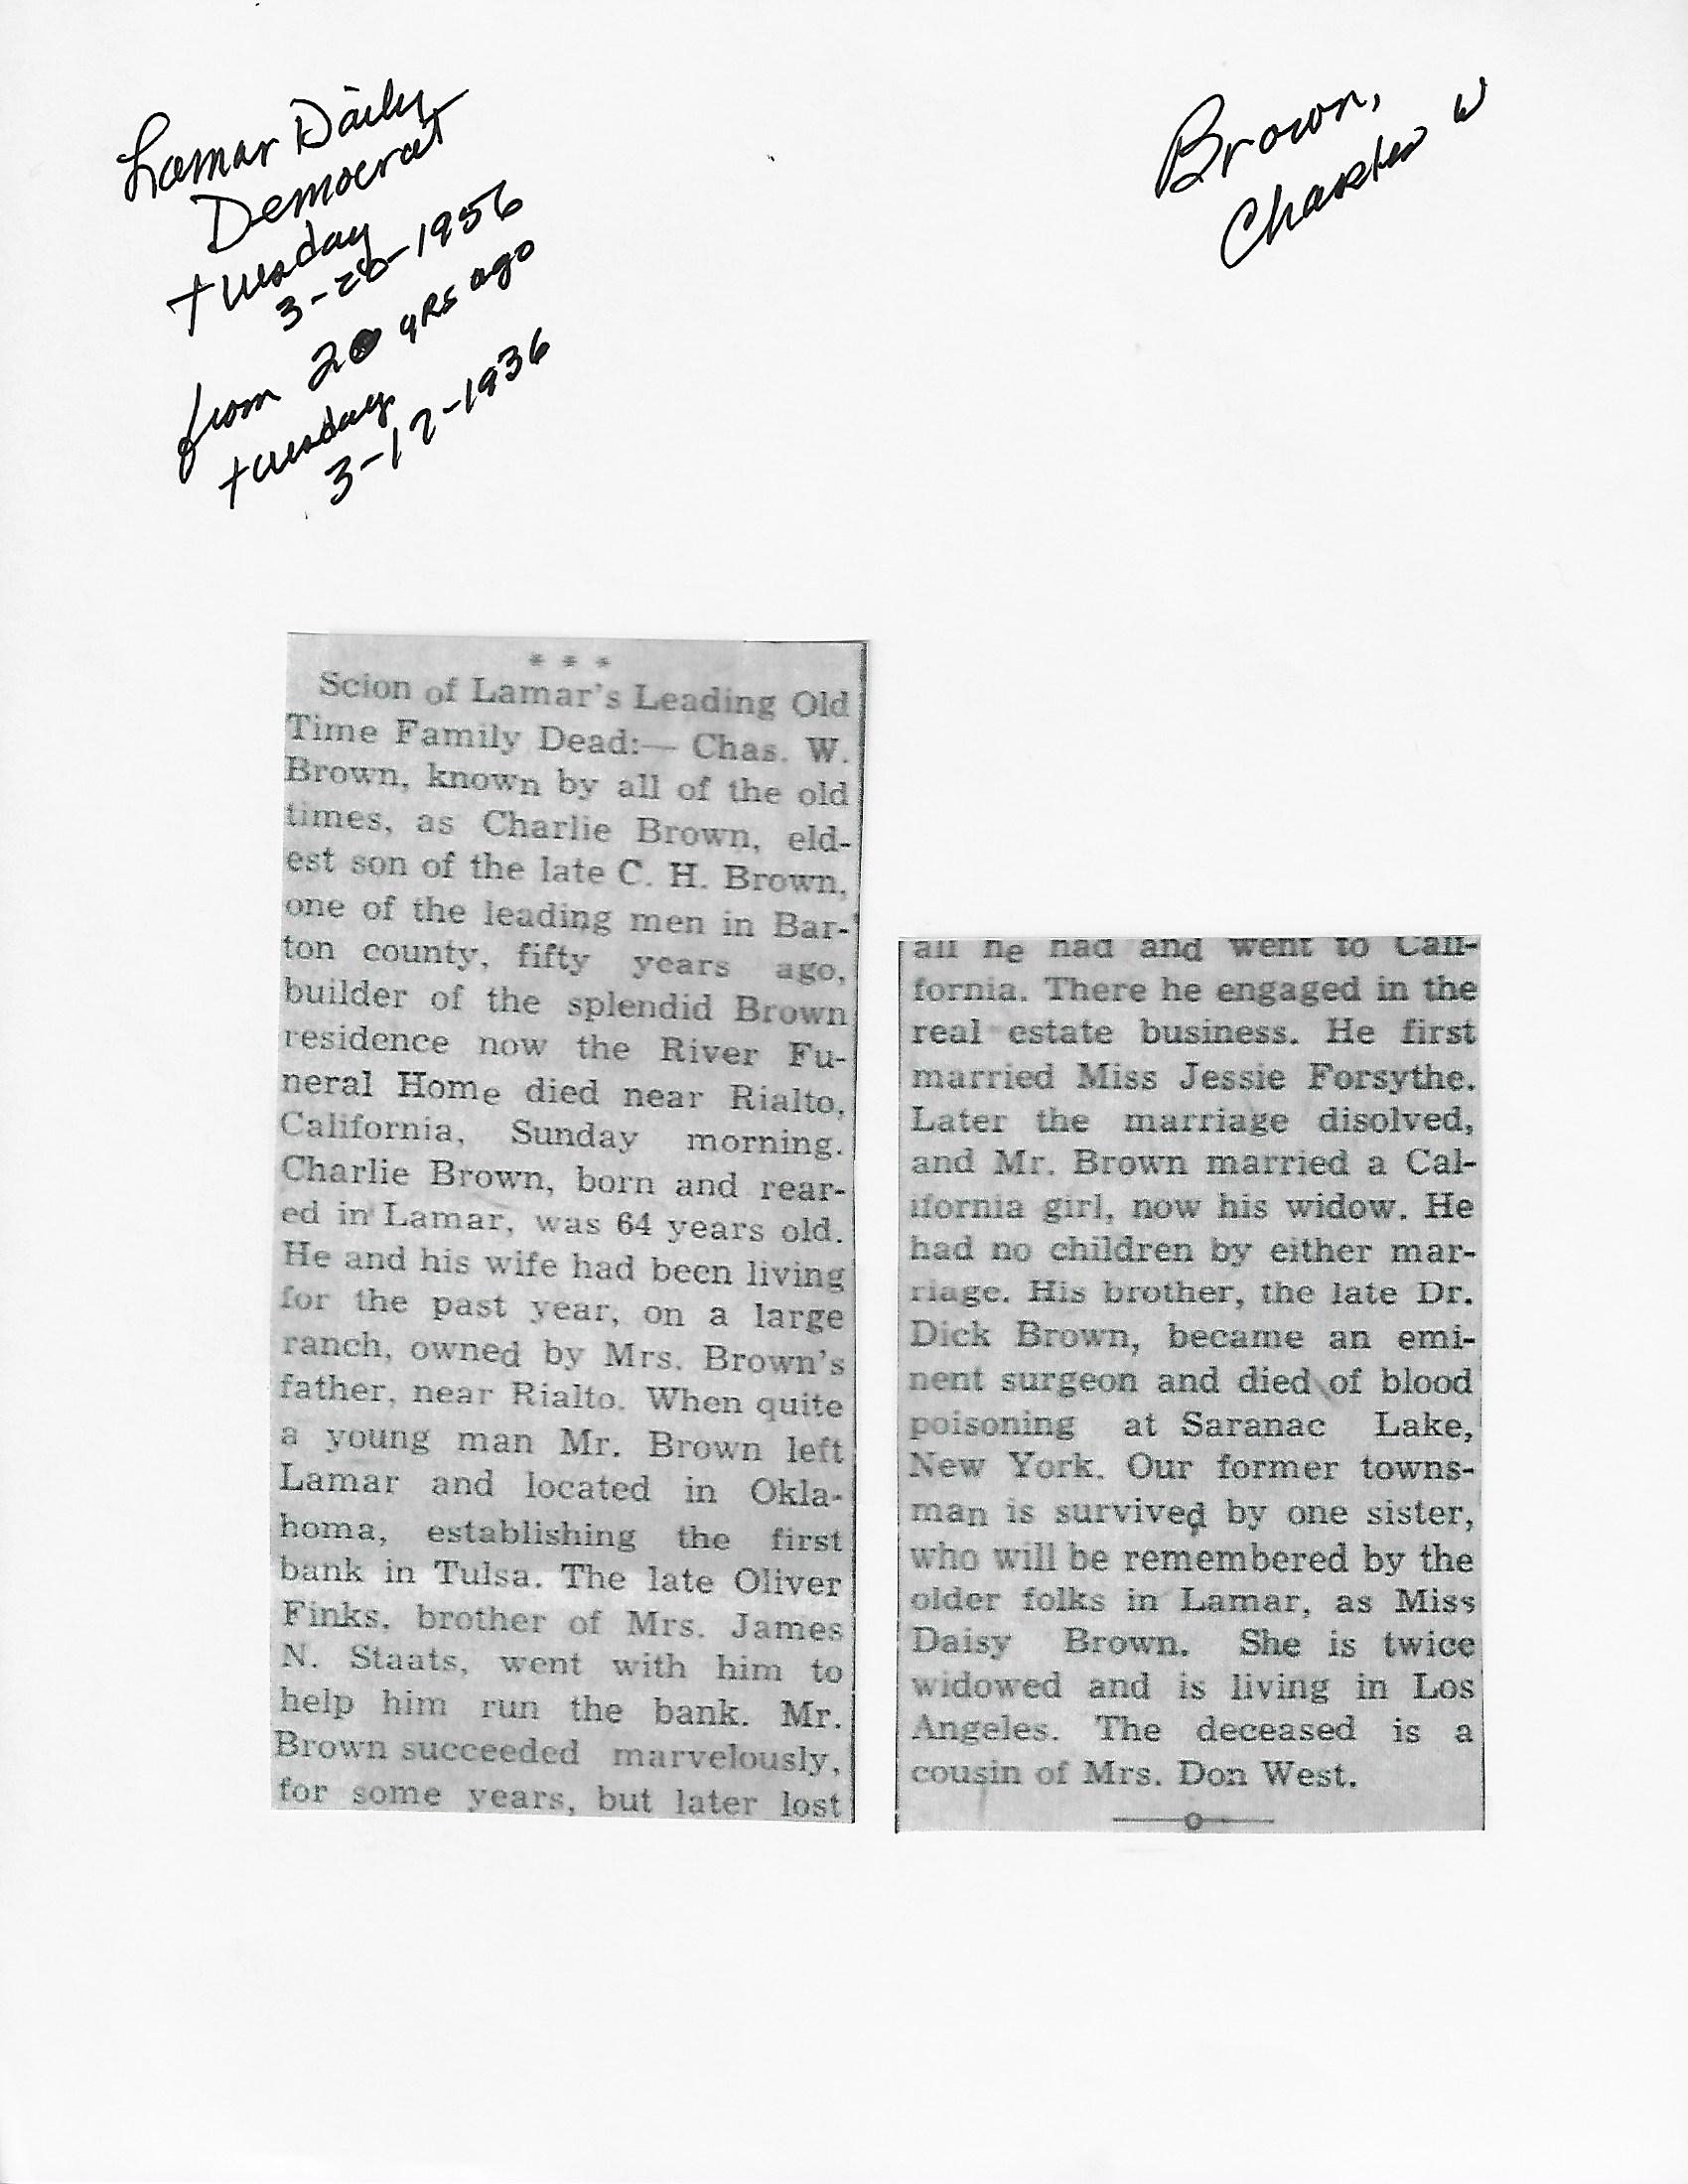 Lamar Daily
Democrat
Tuesday
3-20-1956
from 20 yRs ago
tuesday
3-17-1936
Brown,
Charles W
* * *
Scion of Lamar's Leading Old
Time Family Dead:— Chas. W.
Brown, known by all of the old
times, as Charlie Brown, eld-
est son of the late C. H. Brown,
one of the leading men in Bar-
ton county, fifty years ago,
builder of the splendid Brown
residence now the River Fu-
neral Home died near Rialto,
California, Sunday morning.
Charlie Brown, born and rear-
ed in Lamar, was 64 years old.
He and his wife had been living
for the past year, on a large
ranch, owned by Mrs. Brown's
father, near Rialto. When quite
a young man Mr. Brown left
Lamar and located in Okla-
homa, establishing the first
bank in Tulsa. The late Oliver
Finks, brother of Mrs. James
N. Staats, went with him to
help him run the bank. Mr.
Brown succeeded marvelously,
for some years, but later lost
all he had and went to Cali-
fornia. There he engaged in the
real estate business. He first
married Miss Jessie Forsythe.
Later the marriage disolved,
and Mr. Brown married a Cal-
ifornia girl, now his widow. He
had no children by either mar-
riage. His brother, the late Dr.
Dick Brown, became an emi-
nent surgeon and died of blood
poisoning at Saranac Lake,
New York. Our former towns-
man is survived by one sister,
who will be remembered by the
older folks in Lamar, as Miss
Daisy Brown. She is twice
widowed and is living in Los
Angeles. The deceased is a
cousin of Mrs. Don West.